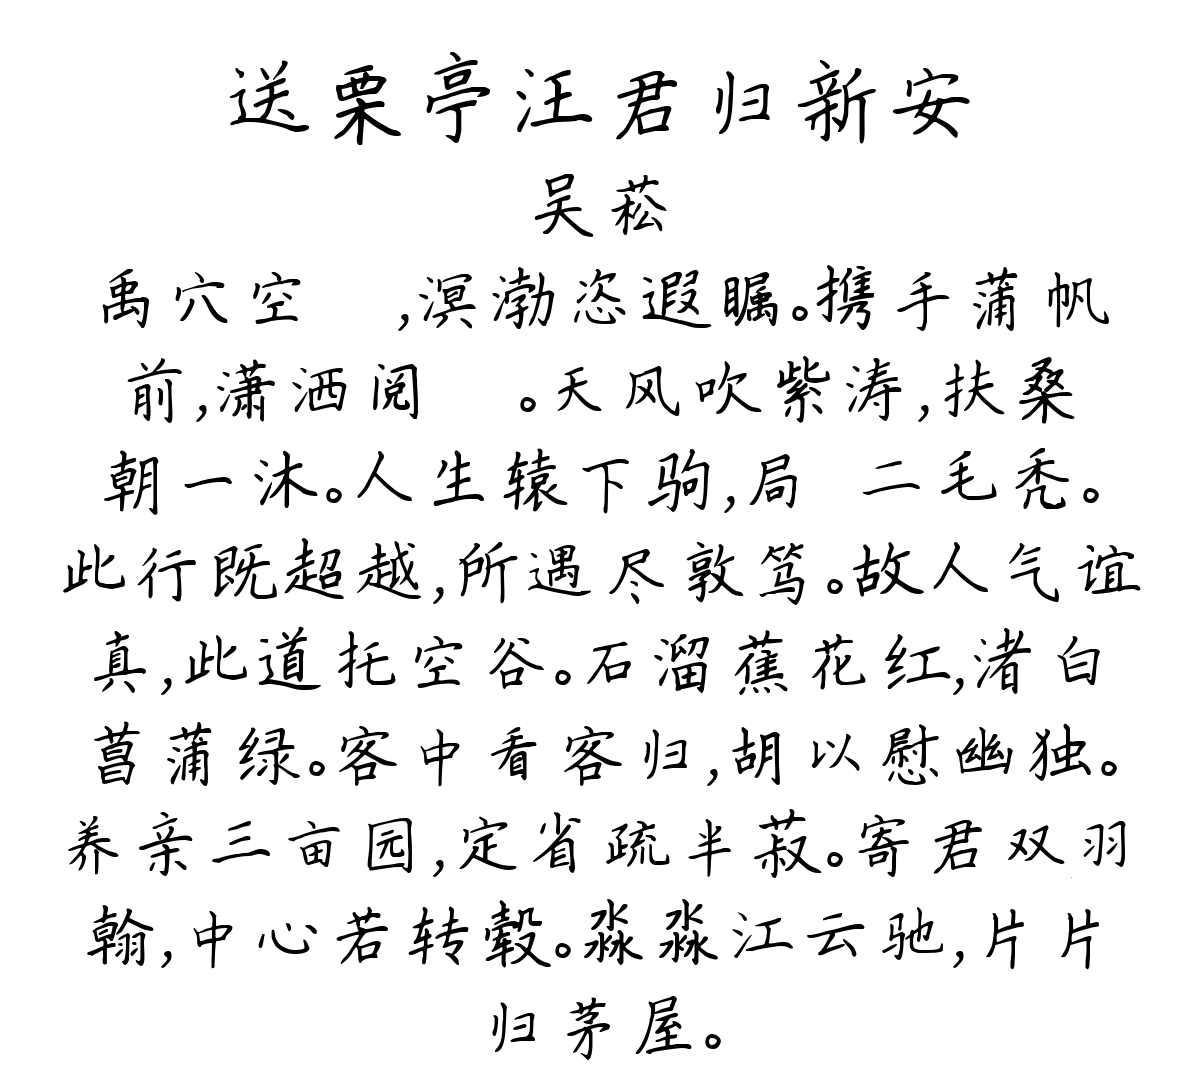 送栗亭汪君归新安
吴菘
禹穴空 ,溟渤恣遐瞩。携手蒲帆
前,潇洒阅 。天风吹紫涛,扶桑
朝一沐。人生辕下驹,局 二毛秃。
此行既超越,所遇尽敦笃。故人气谊
真,此道托空谷。石溜蕉花红,渚白
菖蒲绿。客中看客归,胡以慰幽独。
养亲三亩园,定省疏半菽。寄君双羽
翰,中心若转毂。淼淼江云驰,片片
归茅屋。